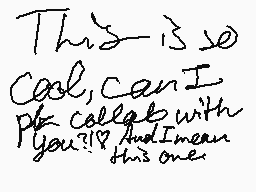 This is so
cool, can I
plz collab with
you?!♡ And I mean
this one.